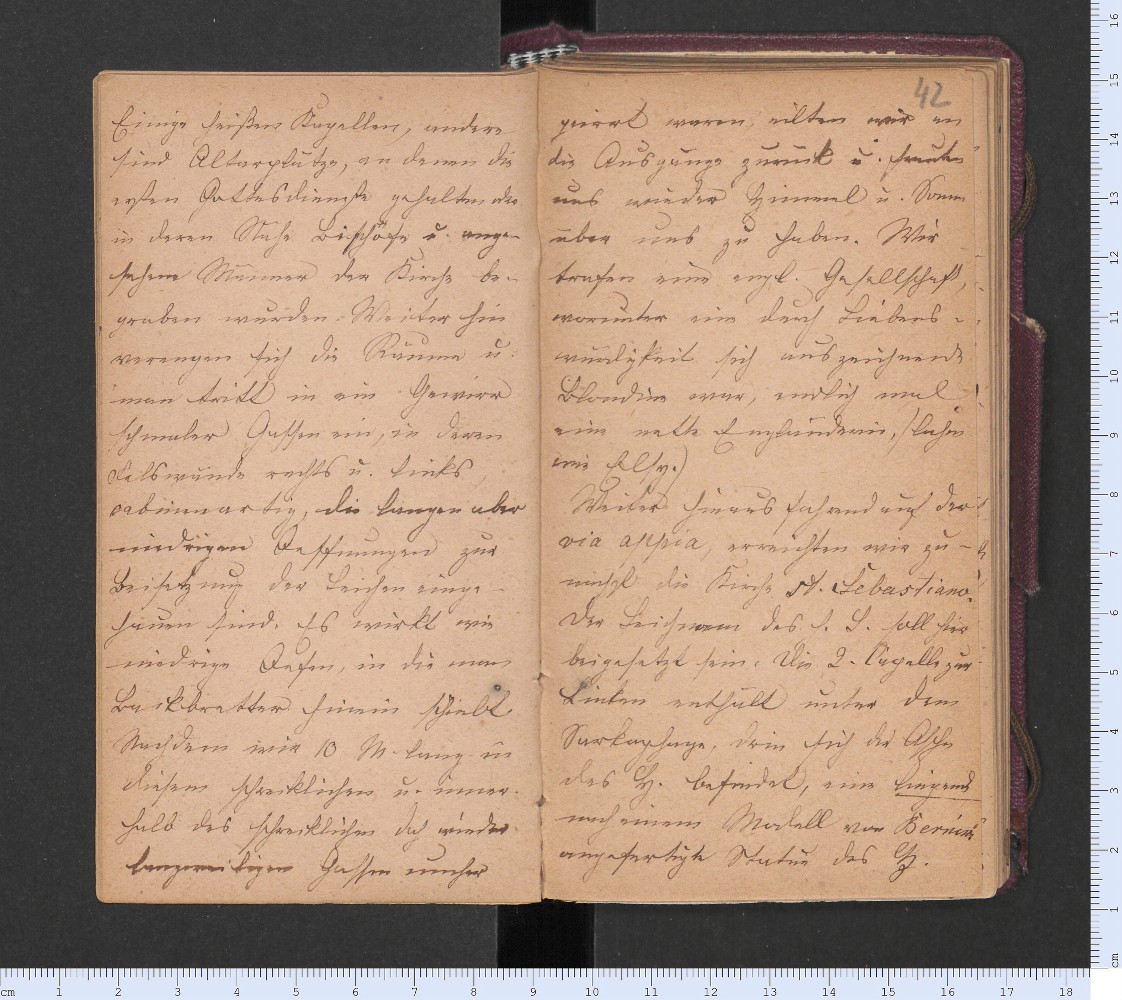 Einige heißen Kapellen, andere
sind Altarplätze, an denen die
ersten Gottesdienste gehalten oder
in deren Nähe Bischöfe u. ange-
sehene Männer der Kirche be-
graben wurden. Weiter hin
verengen sich die Räume u.
man tritt in ein Gewirr
schmaler Gassen ein, in deren
Felswände rechts u. links
cabinenartig, die langen aber
niedrigen Oeffnungen zur
Beisetzung der Leichen einge-
hauen sind. Es wirkt wie
niedrige Oefen, in die man
Backbretter hinein schiebt.
Nachdem wir 10 M. lang in
diesem schrecklichen u. inner-
halb des schrecklichen doch wieder
langweiligen Gassen umher
42
geirrt waren, eilten wir an
die Ausgänge zurück u. freuten
uns wieder Himmel u. Sonne
über uns zu haben. Wir
trafen eine engl. Gesellschaft,
worunter eine durch Liebens-
würdigkeit sich auszeichnende
Blondine war, endlich mal
eine nette Engländerin,
wie Elsy.)
Weiter hinaus fahrend auf der
via appia, erreichten wir zu-
nächst die Kirche St. Sebastiano.
Der Leichnam des h. S. soll hier
beigesetzt sein. Die 2. Capelle zur
Linken enthält unter dem
Sarkophage, drin sich die Asche
des H. befindet, eine liegende
nach einem Modell von Bernini
angefertigte Statue des H.